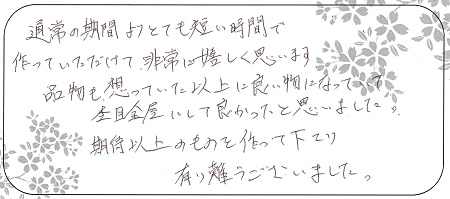 通常の期間よりとても短い時間で
作っていただけて、非常に嬉しく思います
品物も、想っていた以上に良い物になっていて
金屋にして良かったと思いました。
期待以上のものを作って下さり
有り難うございました。